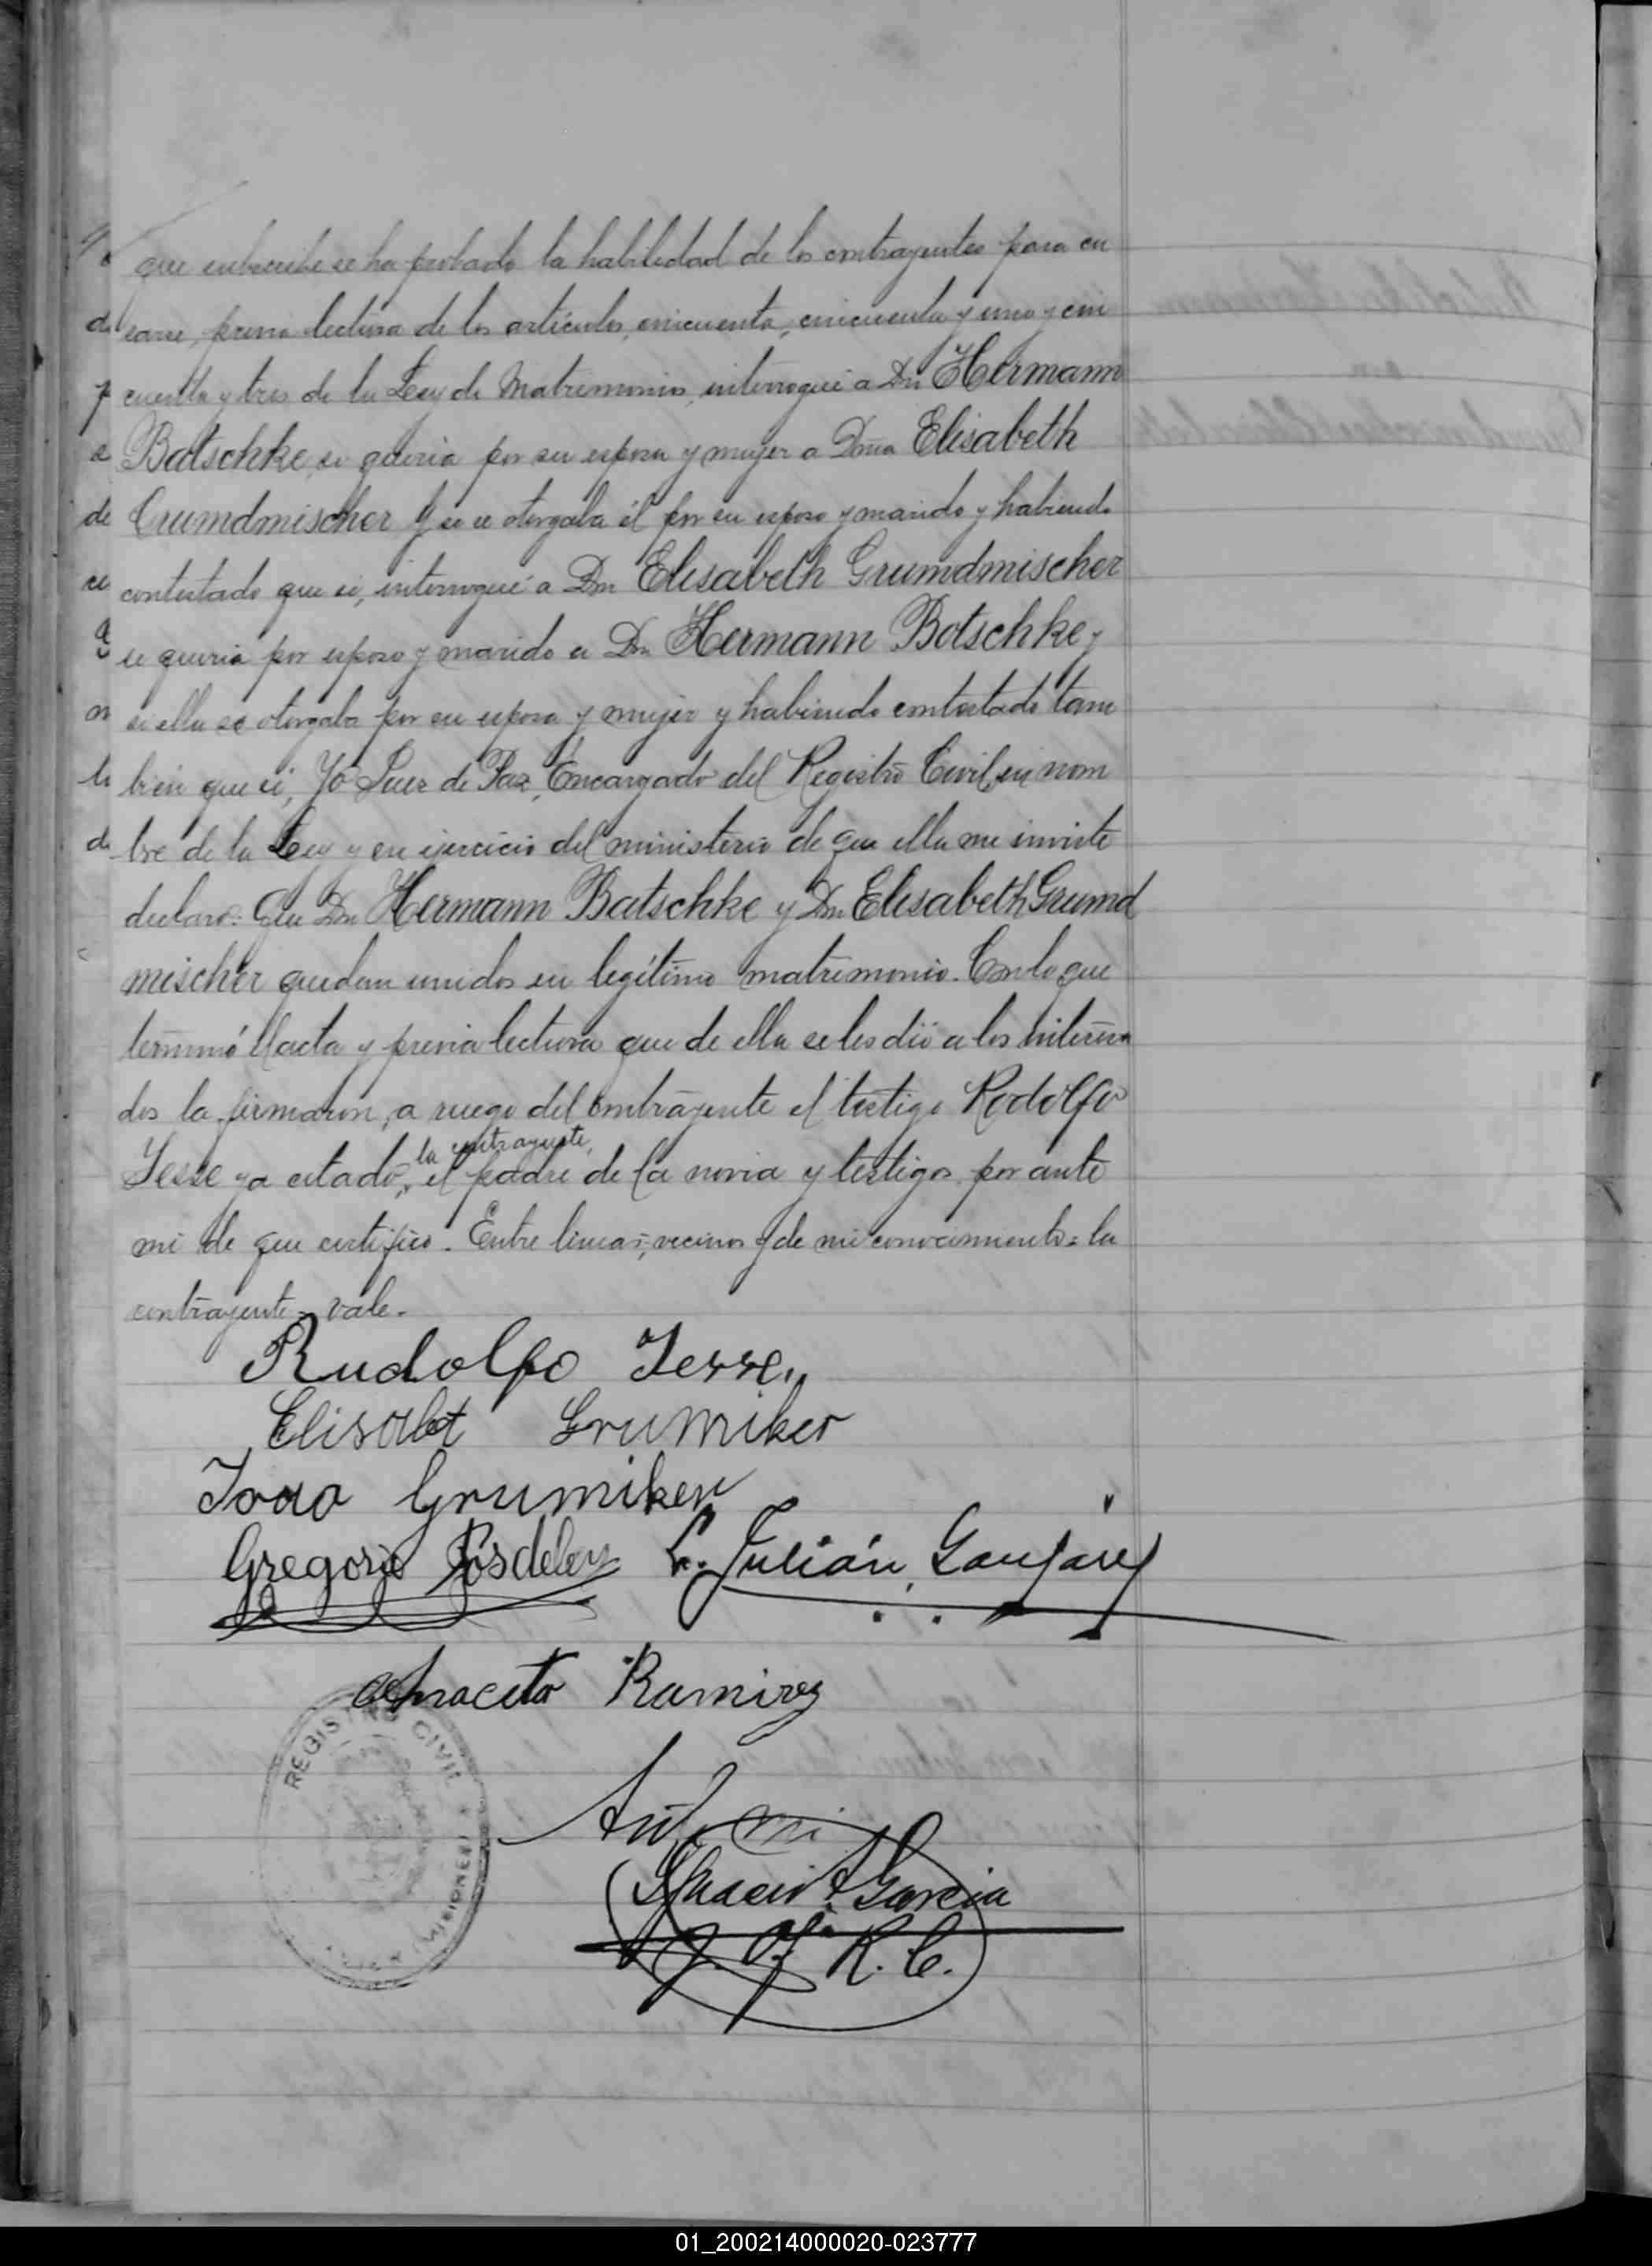 que subscribe se ha probado la habilidad de los contrayentes para ca
sarse, previa lectura de los artículos, cincuenta, cincuenta y uno y cin
cuenta y tres de la Ley de Matrimonio, interrogué a Dn Hermann
Batschke, si quería por su esposa y mujer a Doña Elisabeth
Grumdmischer y si se otorgaba él por su esposo y marido y habiendo
contestado que si, interrogué a Dña Elisabeth Grumdmischer
si quería por esposo y marido a Dn Hermann Botschke y
si ella se otorgaba por su esposa y mujer y habiendo contestado tam
bién que si, Yó Juez de Paz, Encargado del Registro Civil, en nom
bre de la Ley y en ejercicio del ministerio de que ella me inviste
declaro: Que Dn Hermann Batschke y Dña Elisabeth Grumd
mischer quedan unidos en legítimo matrimonio. Con lo que
terminó el acta y previa lectura que de ella se les dió a los interesa
dos la firmaron, a ruego del contrayente el testigo Rodolfo
la contrayente,
Jesse ya citado, el padre de la novia y testigos, por ante
mi de que certifico. Entre lineas, vecinos y de mi conocimiento = la
contrayente = vale.
Rudolfo Jesse
Elisabet Grumiker
Joao Grumiker
Gregorio L. Julián
Anacleto Ramirez
Ante mi
Ignacio A. Garcia
R. C.
REGISTRO CIVIL
(MISIONES)
01_200214000020-023777